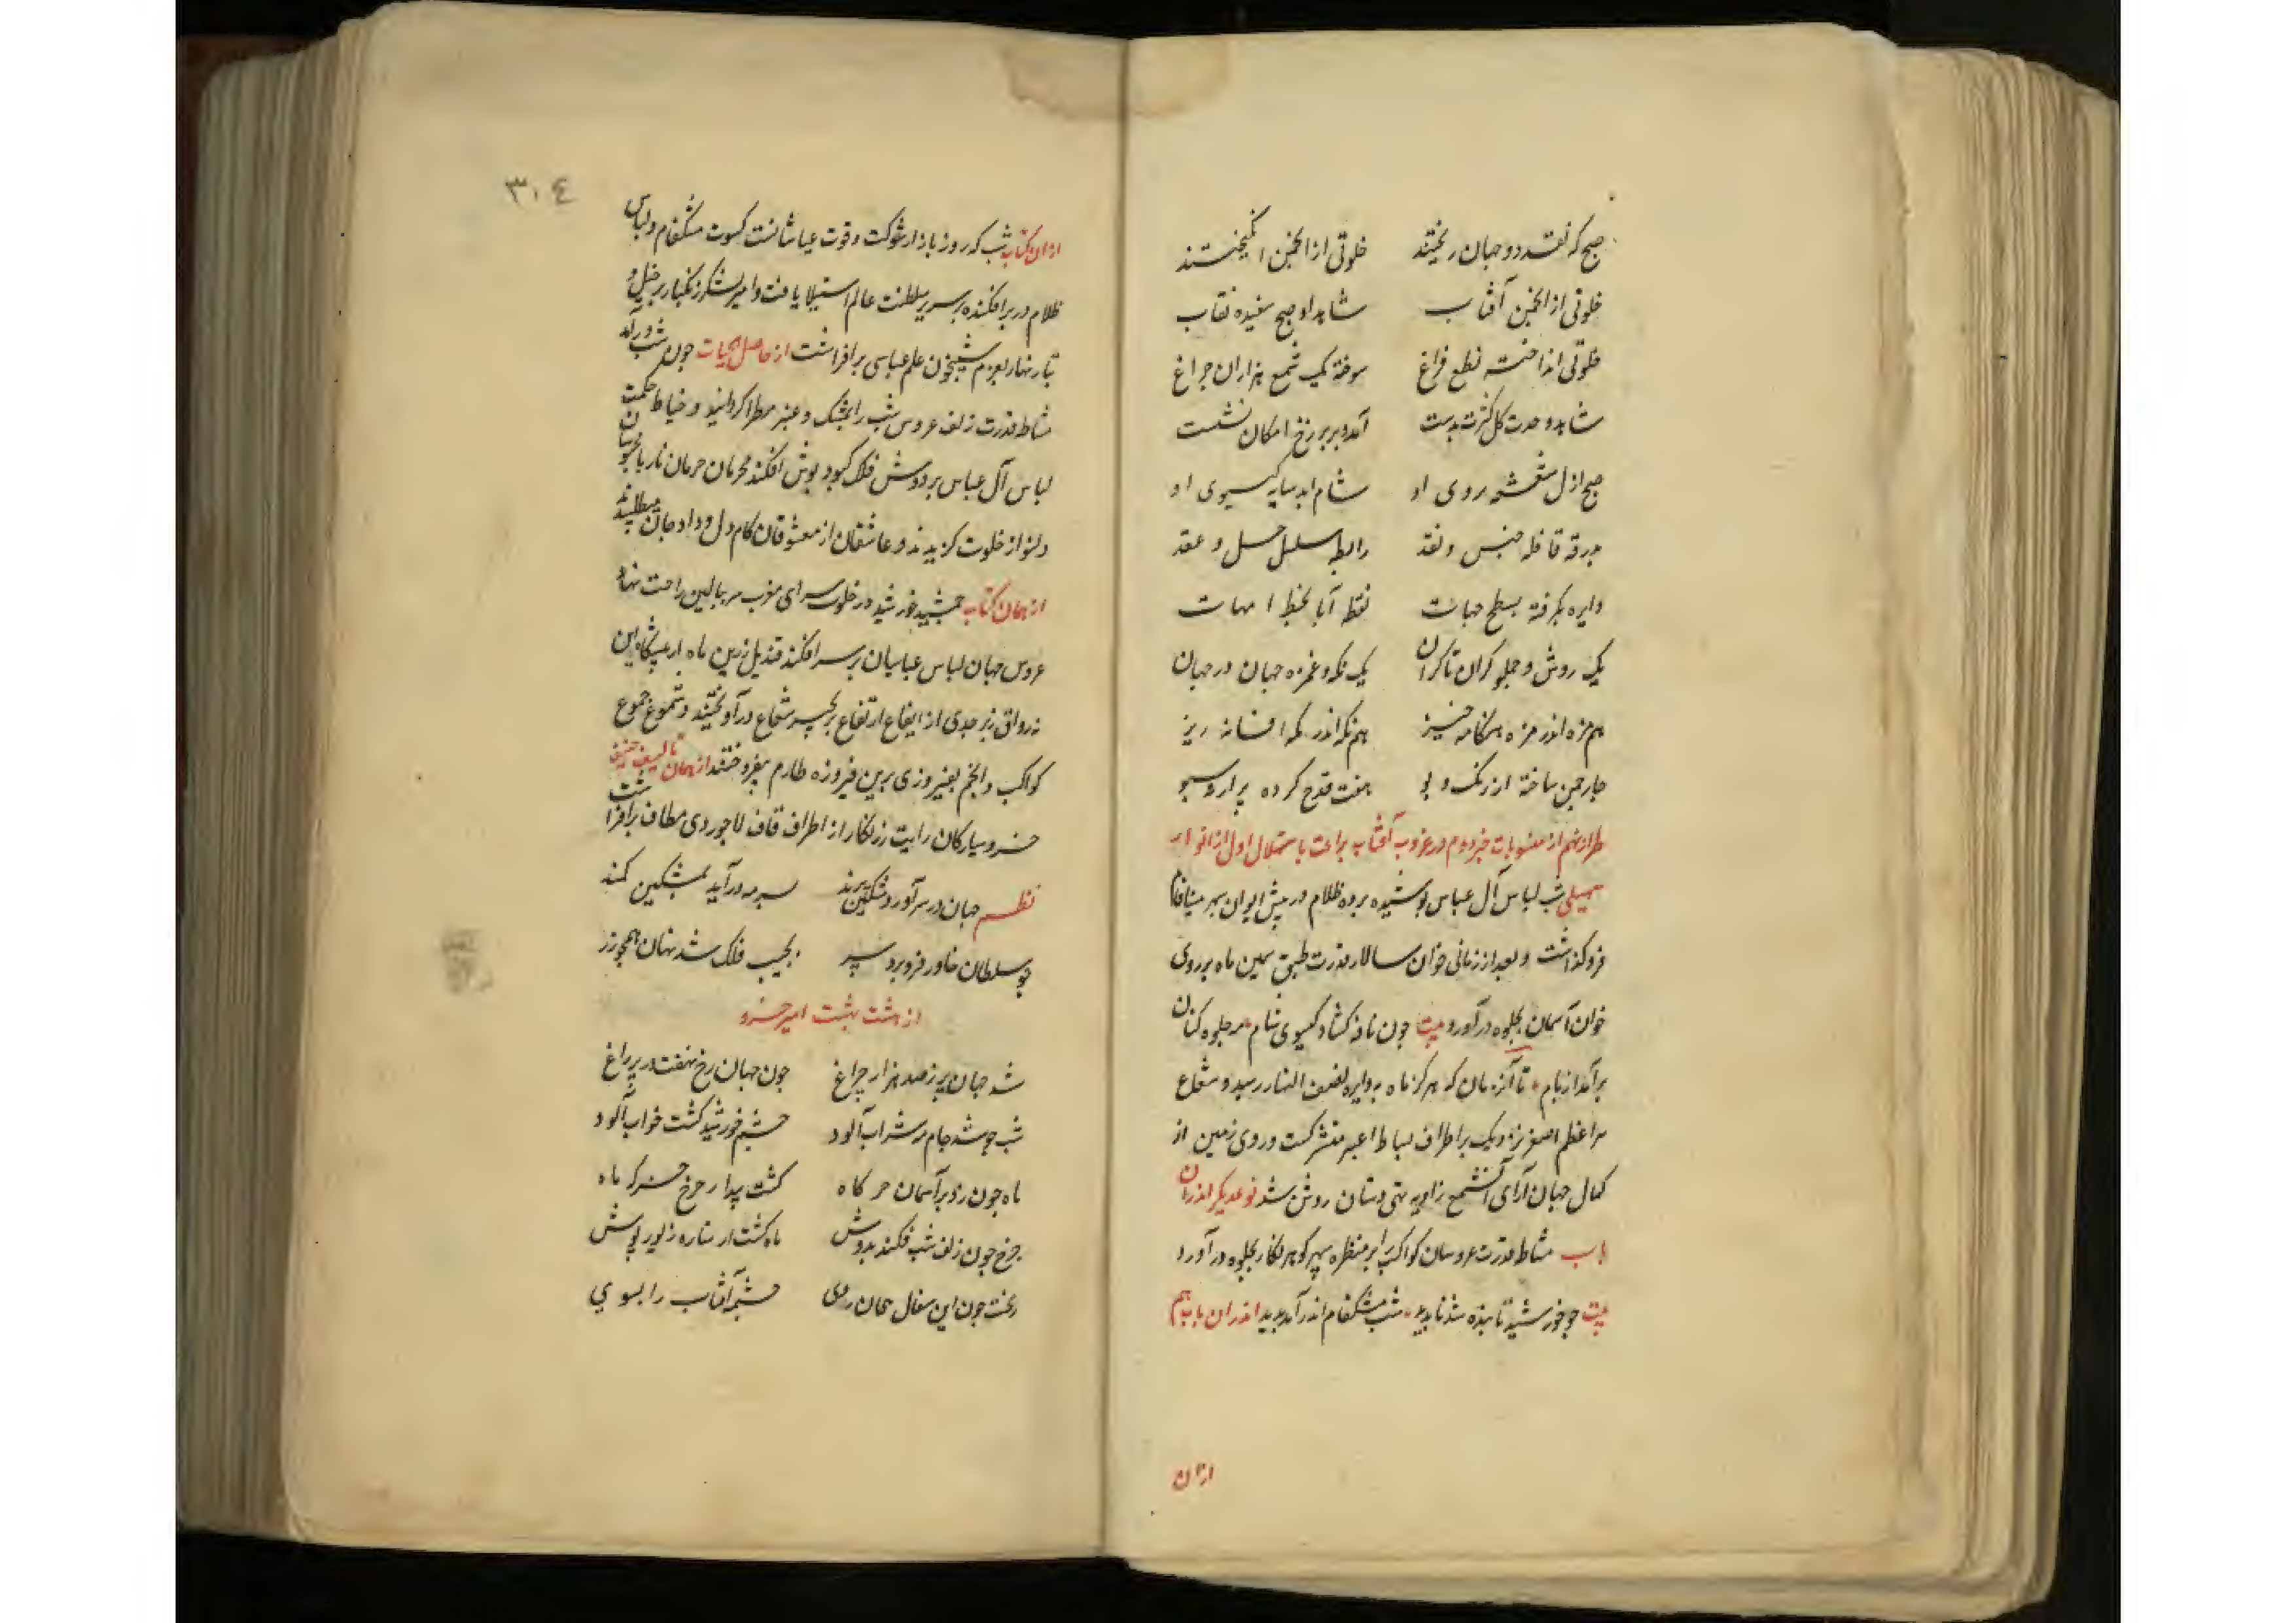 صبح که نقد دو جهان ریختند خلوتی از انجمن انگیختند
خلوتی از انجمن آفتاب شاهد او صبح سفیده نقاب
خلوتی انداخته نطع فراغ سوخته یک شمع هزاران چراغ
شاهد وحدت گل کثرت بدست آمد و بر برزخ امکان نشست
صبح ازل شعشعه روی او شام ابد سایه گیسوی او
بدرقه قافله جنس و نقد رابطه سلسله حل و عقد
دایره بگرفته بسطح جهات نقطه آبا بخط امهات
یک روش و جلوه کران تا کران یک نگه و غمزه جهان در جهان
هم مژه اندر مژه هنگامه خیز هم نگه اندر نگه افسانه ریز
چار چمن ساخته از رنگ و بو هفت قدح کرده پر از یک سبو
طراز نهم از منسوبات جزو دوم در غروب آفتاب براعت باستهلال اول از انوار
سهیلی شب لباس آل عباس پوشیده پرده ظلام در پیش ایوان سپهر مینافام
فرو گذاشت و بعد از زمانی خوان سالار قدرت طبق سیمین ماه بر روی
خوان آسمان بجلوه در آورد بیت چون نافه گشاد گیسوی شام مه جلوه کنان
بر آمد از بام تا آن زمان که مرکز ماه به دایره نصف النهار رسید و شعاع
اعظم اصغر نزدیک بر اطراف بساط اغبر منتشر گشت و روی زمین از
کمال جهان آرای آن شمع زاویه تهی دستان روشن شد نوعدیگر اندران
باب مشاطه قدرت عروسان کواکب را بر منظره سپهر گوهرنگار بجلوه در آورد
بیت چو خورشید تابنده شد ناپدید شب مشکفام اندر آمد پدید اندران باب هم
ازان
۳۰۴
ازان کتاب شب که روز بازار شوکت و قوت عباسیانست کسوت مشکفام و لباس
ظلام در بر افکنده بر سریر سلطنت عالم استیلا یافت و امیر لشکر زنگبار بر خیل و
تبار نهار بعزم شبیخون علم عباسی بر افراشت از حاصل الحیات چون شب در آمد
مشاطه قدرت زلف عروس شب را بمشک و عنبر مطرا گردانید و خیاط حکمت
لباس آل عباس بر دوش فلک کبود پوش افکند محرمان حرمان نار با محبوبان
دلنواز خلوت گزیدند و عاشقان از معشوقان کام دل و داد جان میطلبیدند
از همان کتاب جمشید خورشید در خلوت سرای مغرب سر ببالین راحت نهاد
عروس جهان لباس عباسیان بر سر افکند قندیل زرین ماه از پیشگاه این
نه رواق زبرجدی از ایقاع ارتفاع بزنجیر شعاع در آویختند و شموع جموع
کواکب و انجم بفیروزی برین فیروزه طارم بیفروختند از همان تالیف حنیف
خسرو سیارگان رایت زرنگار از اطراف قاف لاجوردی مطاف بر افراشت
نظم جهان در سر آورد مشکین پرند سر مه در آید بمشکین کمند
چو سلطان خاور فرو برد سپر بجیب فلک شد نهان همچو زر
از هشت بهشت امیر خسرو
شد جهان پر ز صد هزار چراغ چون جهان رخ نهفت در پر زاغ
شب چو شد جام مه شراب آلود چشم خورشید گشت خواب آلود
ماه چون زد بر آسمان خرگاه گشت پیدا ز چرخ خرگه ماه
چرخ چون زلف شب فکند بدوش ماه گشت از ستاره زیور پوش
ریخت چون این سفال ریحان روی چشمه آفتاب را بسوی